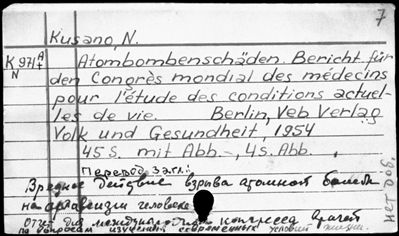 7
Kusano, N.
K 971 A/4 Atombombenschäden. Bericht für
N den Congrès mondial des médecins
pour l'étude des conditions actuel-
les de vie. Berlin, Veb Verlag
Volk und Gesundheit, 1954
45 S. mit Abb., 4 S. Abb.
Перевод загл.:
Вредное действие взрыва атомной бомбы
на организм человека
Отчет для международного конгресса врачей
по вопросам изучения современных условий жизни.
нет доб.